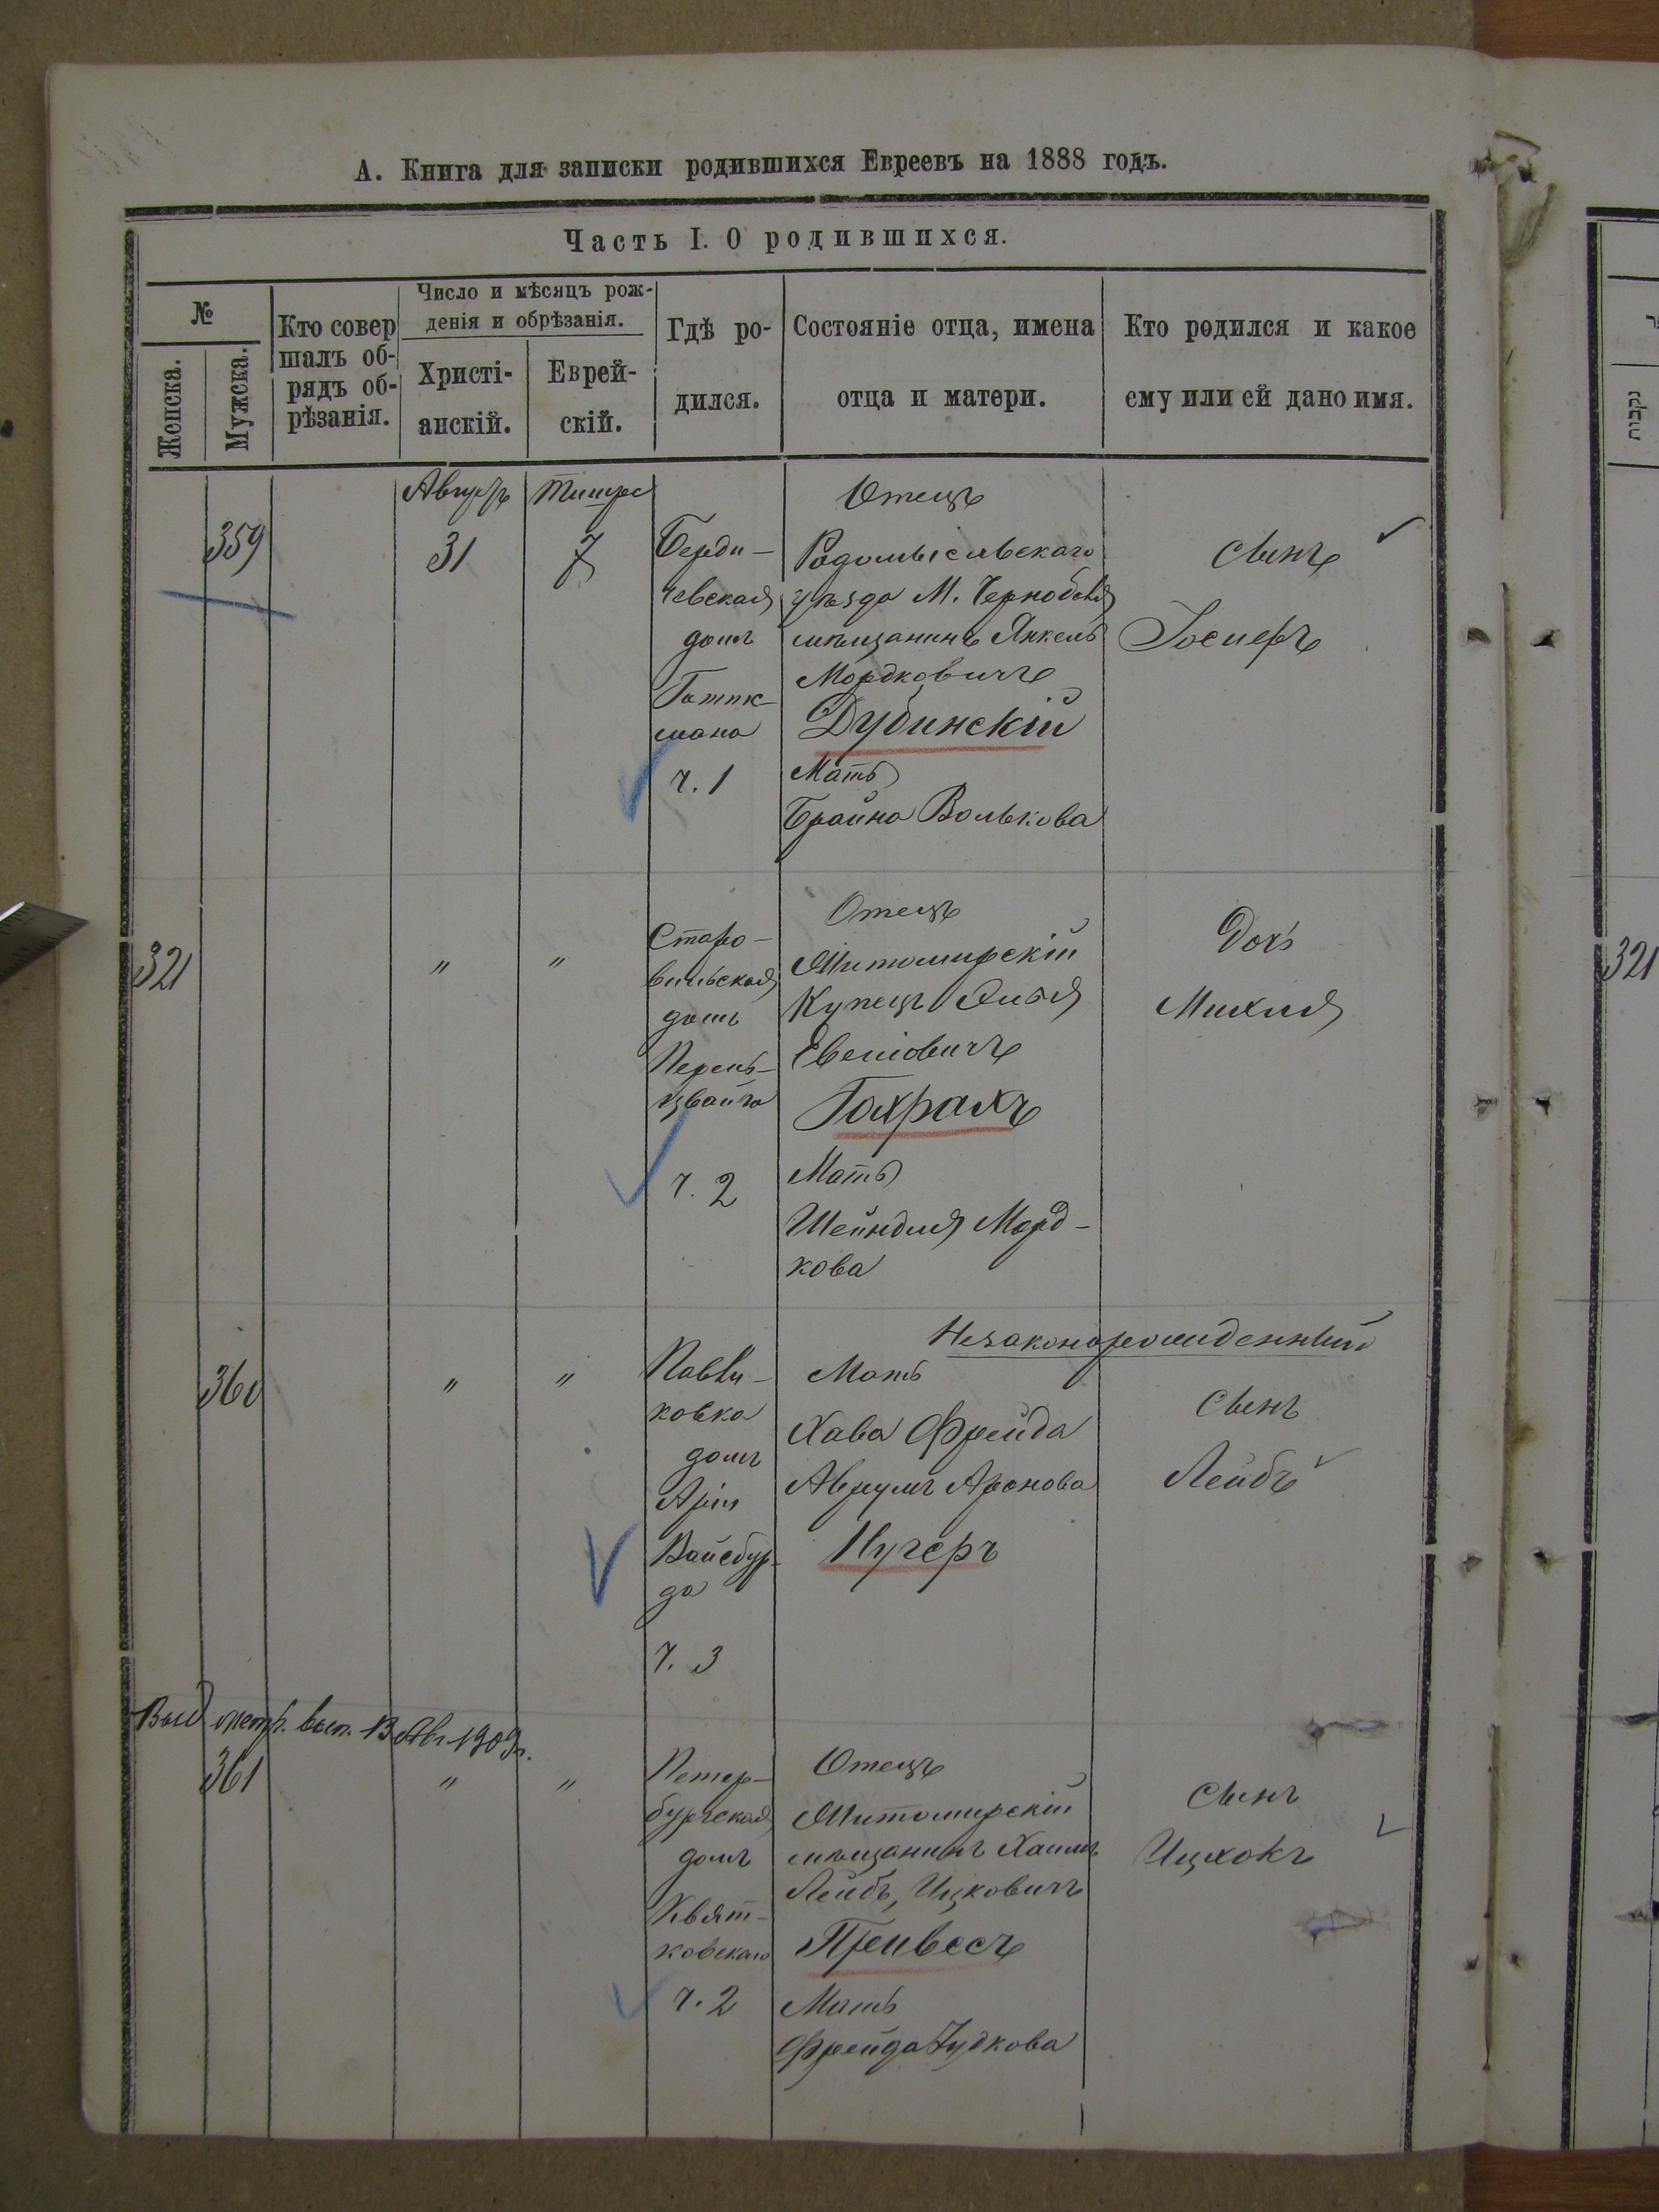 А. Книга для записки родившихся Евреевъ на 1888 годъ.
Часть I. О родившихся.
№
Женска.
Мужска.
Кто совер
шалъ об-
рядъ об-
рѣзанія.
Число и мѣсяцъ рож-
денія и обрѣзанія.
Христі-
анскій.
Еврей-
скій.
Гдѣ ро-
дился.
Состояніе отца, имена
отца и матери.
Кто родился и какое
ему или ей дано имя.
359
Августъ
31
Тишре
7
Берди-
чевская
домъ
шана
ч. 1
Отецъ
Радомысльскаго
уѣзда М. Чернобыля
мѣщанинъ Янкель
Мордковичъ
Дубинскій
Мать
Брайна Волькова
Сынъ
Іосифъ
321
"
"
Старо-
вильская
домъ
Перель-
цвайга
ч. 2
Отецъ
Житомирскій
Купецъ Элья
Евелювичъ
Гахрахъ
Мать
Шейндля Морд-
кова
Дочь
Михля
321
360
"
"
Павли-
ковка
домъ
Арія
Вайсбур-
да
ч. 3
Незаконорожденный
Мать
Хава Фрейда
Аврумъ Аронова
Нугеръ
Сынъ
Лейбъ
Выд метр. вып. 13 Авг. 1909 г.
361
"
"
Петер-
бургская
домъ
Квят-
ковскаго
ч. 2
Отецъ
Житомирскій
мѣщанинъ Хаимъ
Лейбъ, Ицковичъ
Прейвесъ
Мать
Фрейда Зудкова
Сынъ
Ицхокъ